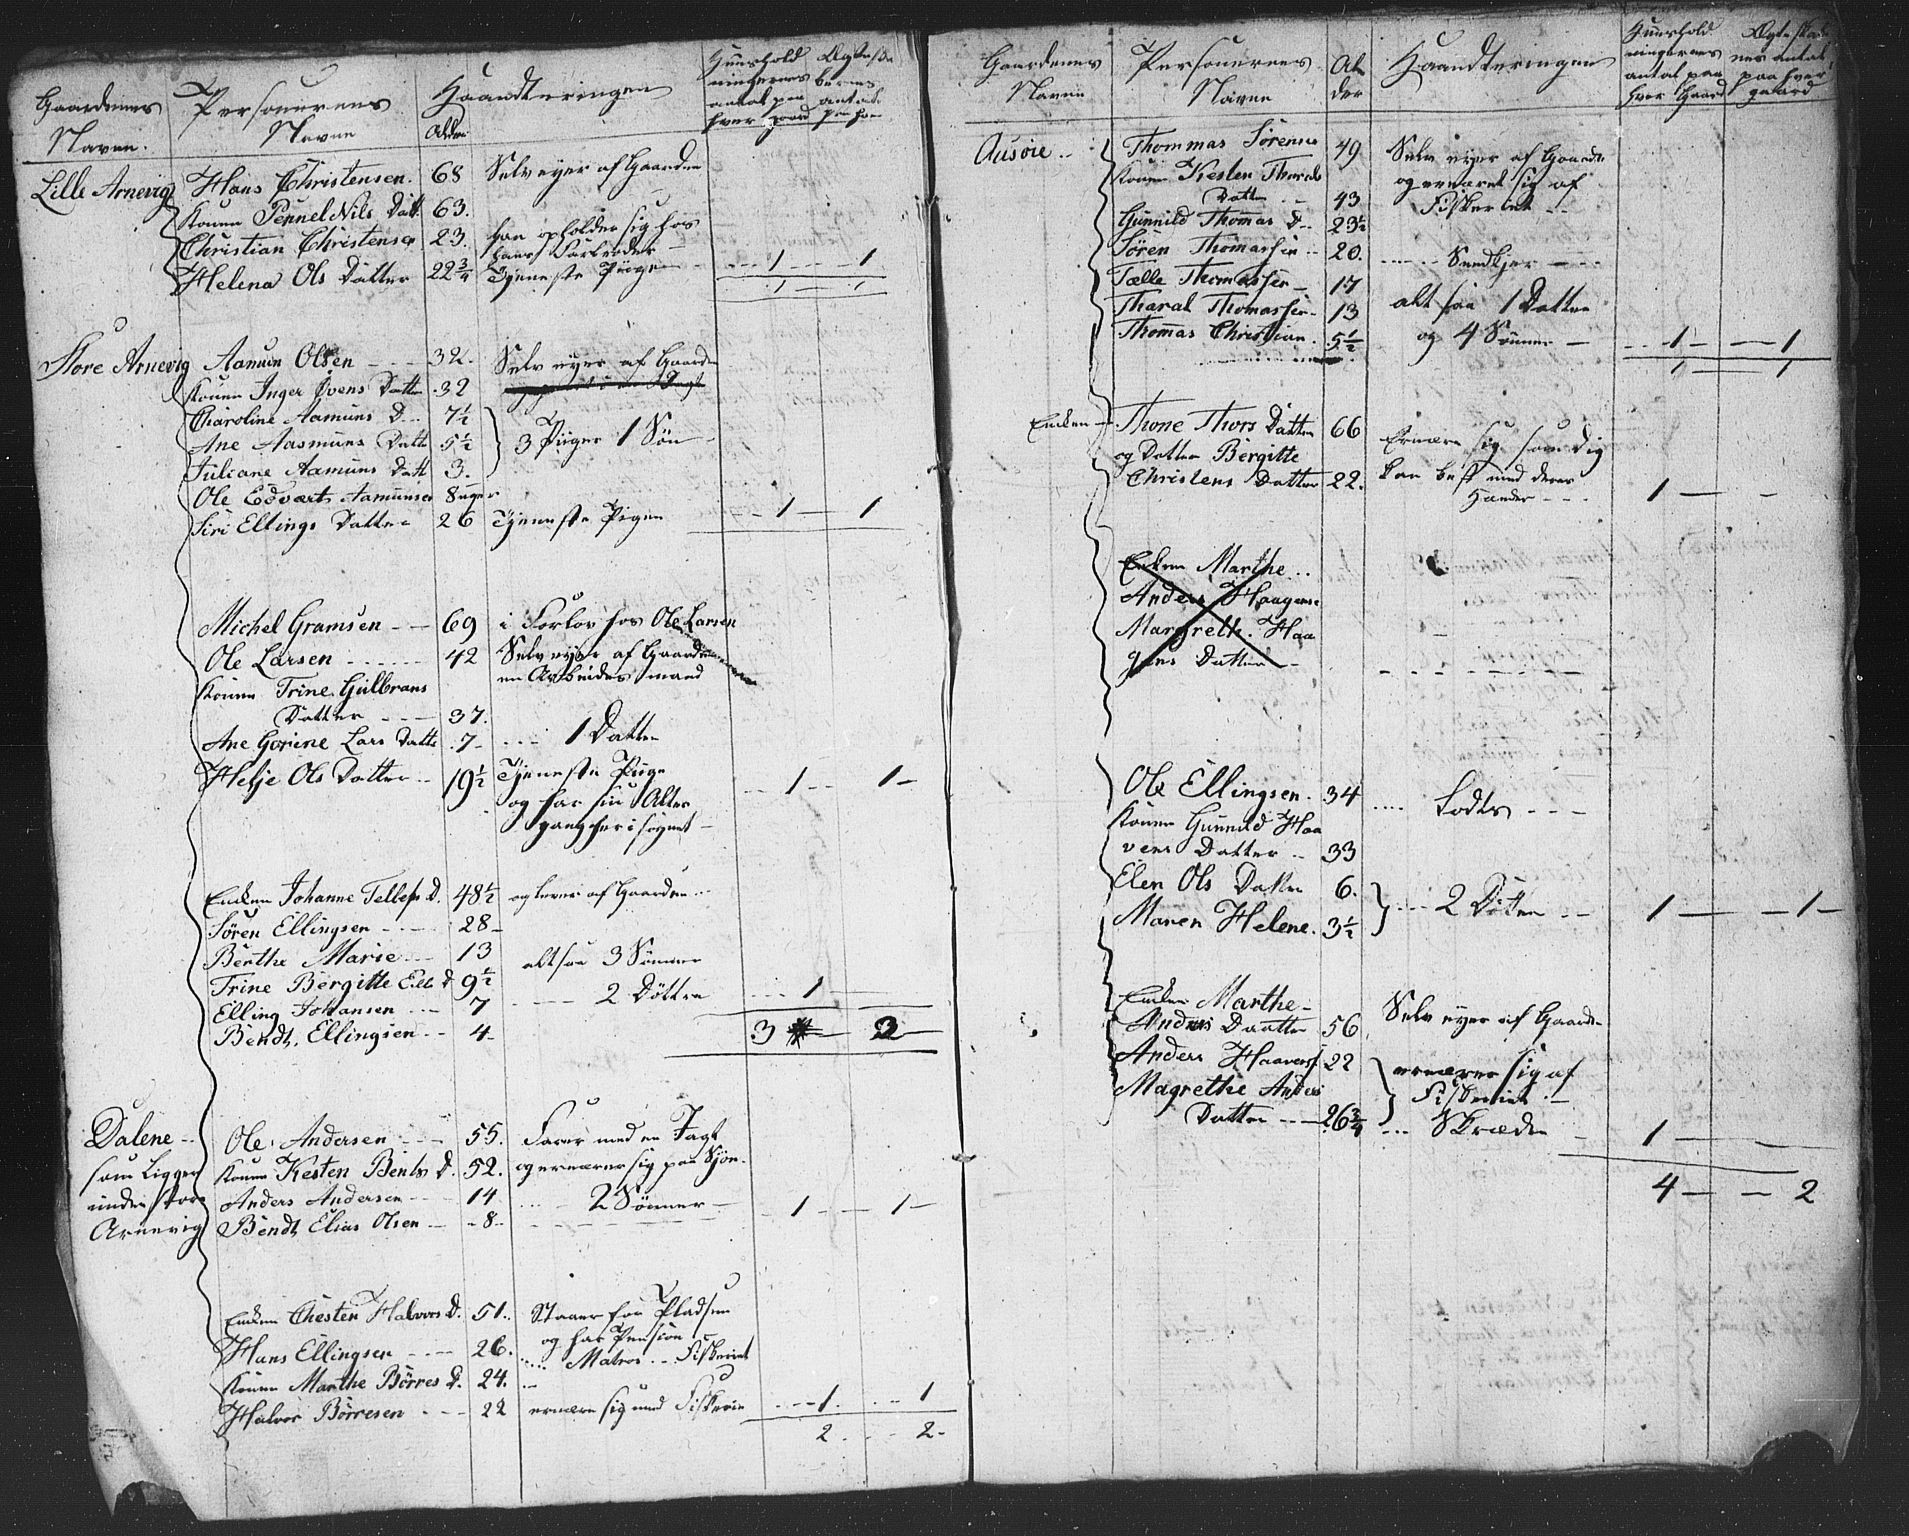 Gaardenes Navne. Personernes Navne Alder Haandteringen Huusholdningernes antal paa hver gaard
Lille Arnevig Hans Christensen. 68 Selv eyer af Gaarden
Konen Pennel Nils Datt. 63.
Christian Christensen 23. han opholder sig hos
hans Forældre
Helena Ols Datter 22 3/4 Tjeneste Piige 1 1
1 1
Store Arnevig Aamun Olsen 32. Selv eyer af Gaarden
Konen Inger Ovens Datter 32
Charoline Aamuns D. 7 1/2
Ane Aasmuns Datt 5 1/2 3 Piiger 1 Søn
Juliane Aamuns Datt 3.
Ole Edvart Aamunsen 8 uger
Siri Ellings Datter 26 Tjeneste Pigen 1 1
Michel Gramsen 69 i Forlov hos Ole Larsen
Ole Larsen 42 Selv eyer af Gaarden
en Arbeides mand
Konen Trine Gulbrans
Datter 37.
Ane Gorine Lars Datter 7 1 Datter
Helje Ols Datter 19 1/2 Tjeneste Piige 1 1
og har sin Alter
gang her i sognet
Enken Johanne Tellefs D. 48 1/2 og lever af Gaarden
Søren Ellingsen 28
Berthe Marie 13 altsaa 3 Sønner
Trine Bergitte Ell. D 9 1/2
Elling Johansen 7 2 Døttre 1
Bendt Ellingsen 4 3 2
Dalene Ole Andersen 55. Farer med en Jagt
som Ligger Konen Kesten Bents D. 52. og ernærer sig paa Sjøn.
under Store Anders Andersen 14 2 Sønner 1 1
Arnevig Bendt Elias Olsen 8
Enken Chesten Halvors D. 51. Staaer for Pladsen
og har Pension
Hans Ellingsen 26. Matros Fiskeriet
Konen Marthe Børres D. 24.
Halvor Børresen 22 ernære sig med Fiskerie 1 1
2 2
Gaardenes Navne Personernes Navne Alder Haandteringen Huusholdningernes antal paa hver Gaard Ægteskabernes antal paa hver gaard
Ausøie Thommas Sørensen 49 Selv eyer af Gaarden
Konen Kesten Tharals og ernæret sig af
Datter 43 Fiskeriet
Gunnild Thomas D. 23 1/2
Søren Thomassen 20.
Tælle Thomassen 17
Tharal Thomassen 13 alt saa 1 Datter
Thomas Christian 5 1/2 og 4 Sønner 1 1
1 1
Enken Thone Thors Datter 66 Ernære sig som Dig
og Datter Bergitte kan best med deres
Christens Datter 22. Hænder 1
Enken Marthe
Anders Haagens
Margreth. Haa
gens Datter
Ole Ellingsen. 34 Lods
Konen Gunnild Haa
vens Datter 33
Elen Ols Datter 6. 2 Døttre 1 1
Maren Helene. 3 1/2
Enken Marthe
Anders Daatter 56 Selv eyer af Gaarden
Anders Haavens 22 ernærer sig af
Magrethe Anders Fiskeriet
Datter 26 3/4 Skræder 1
4 2